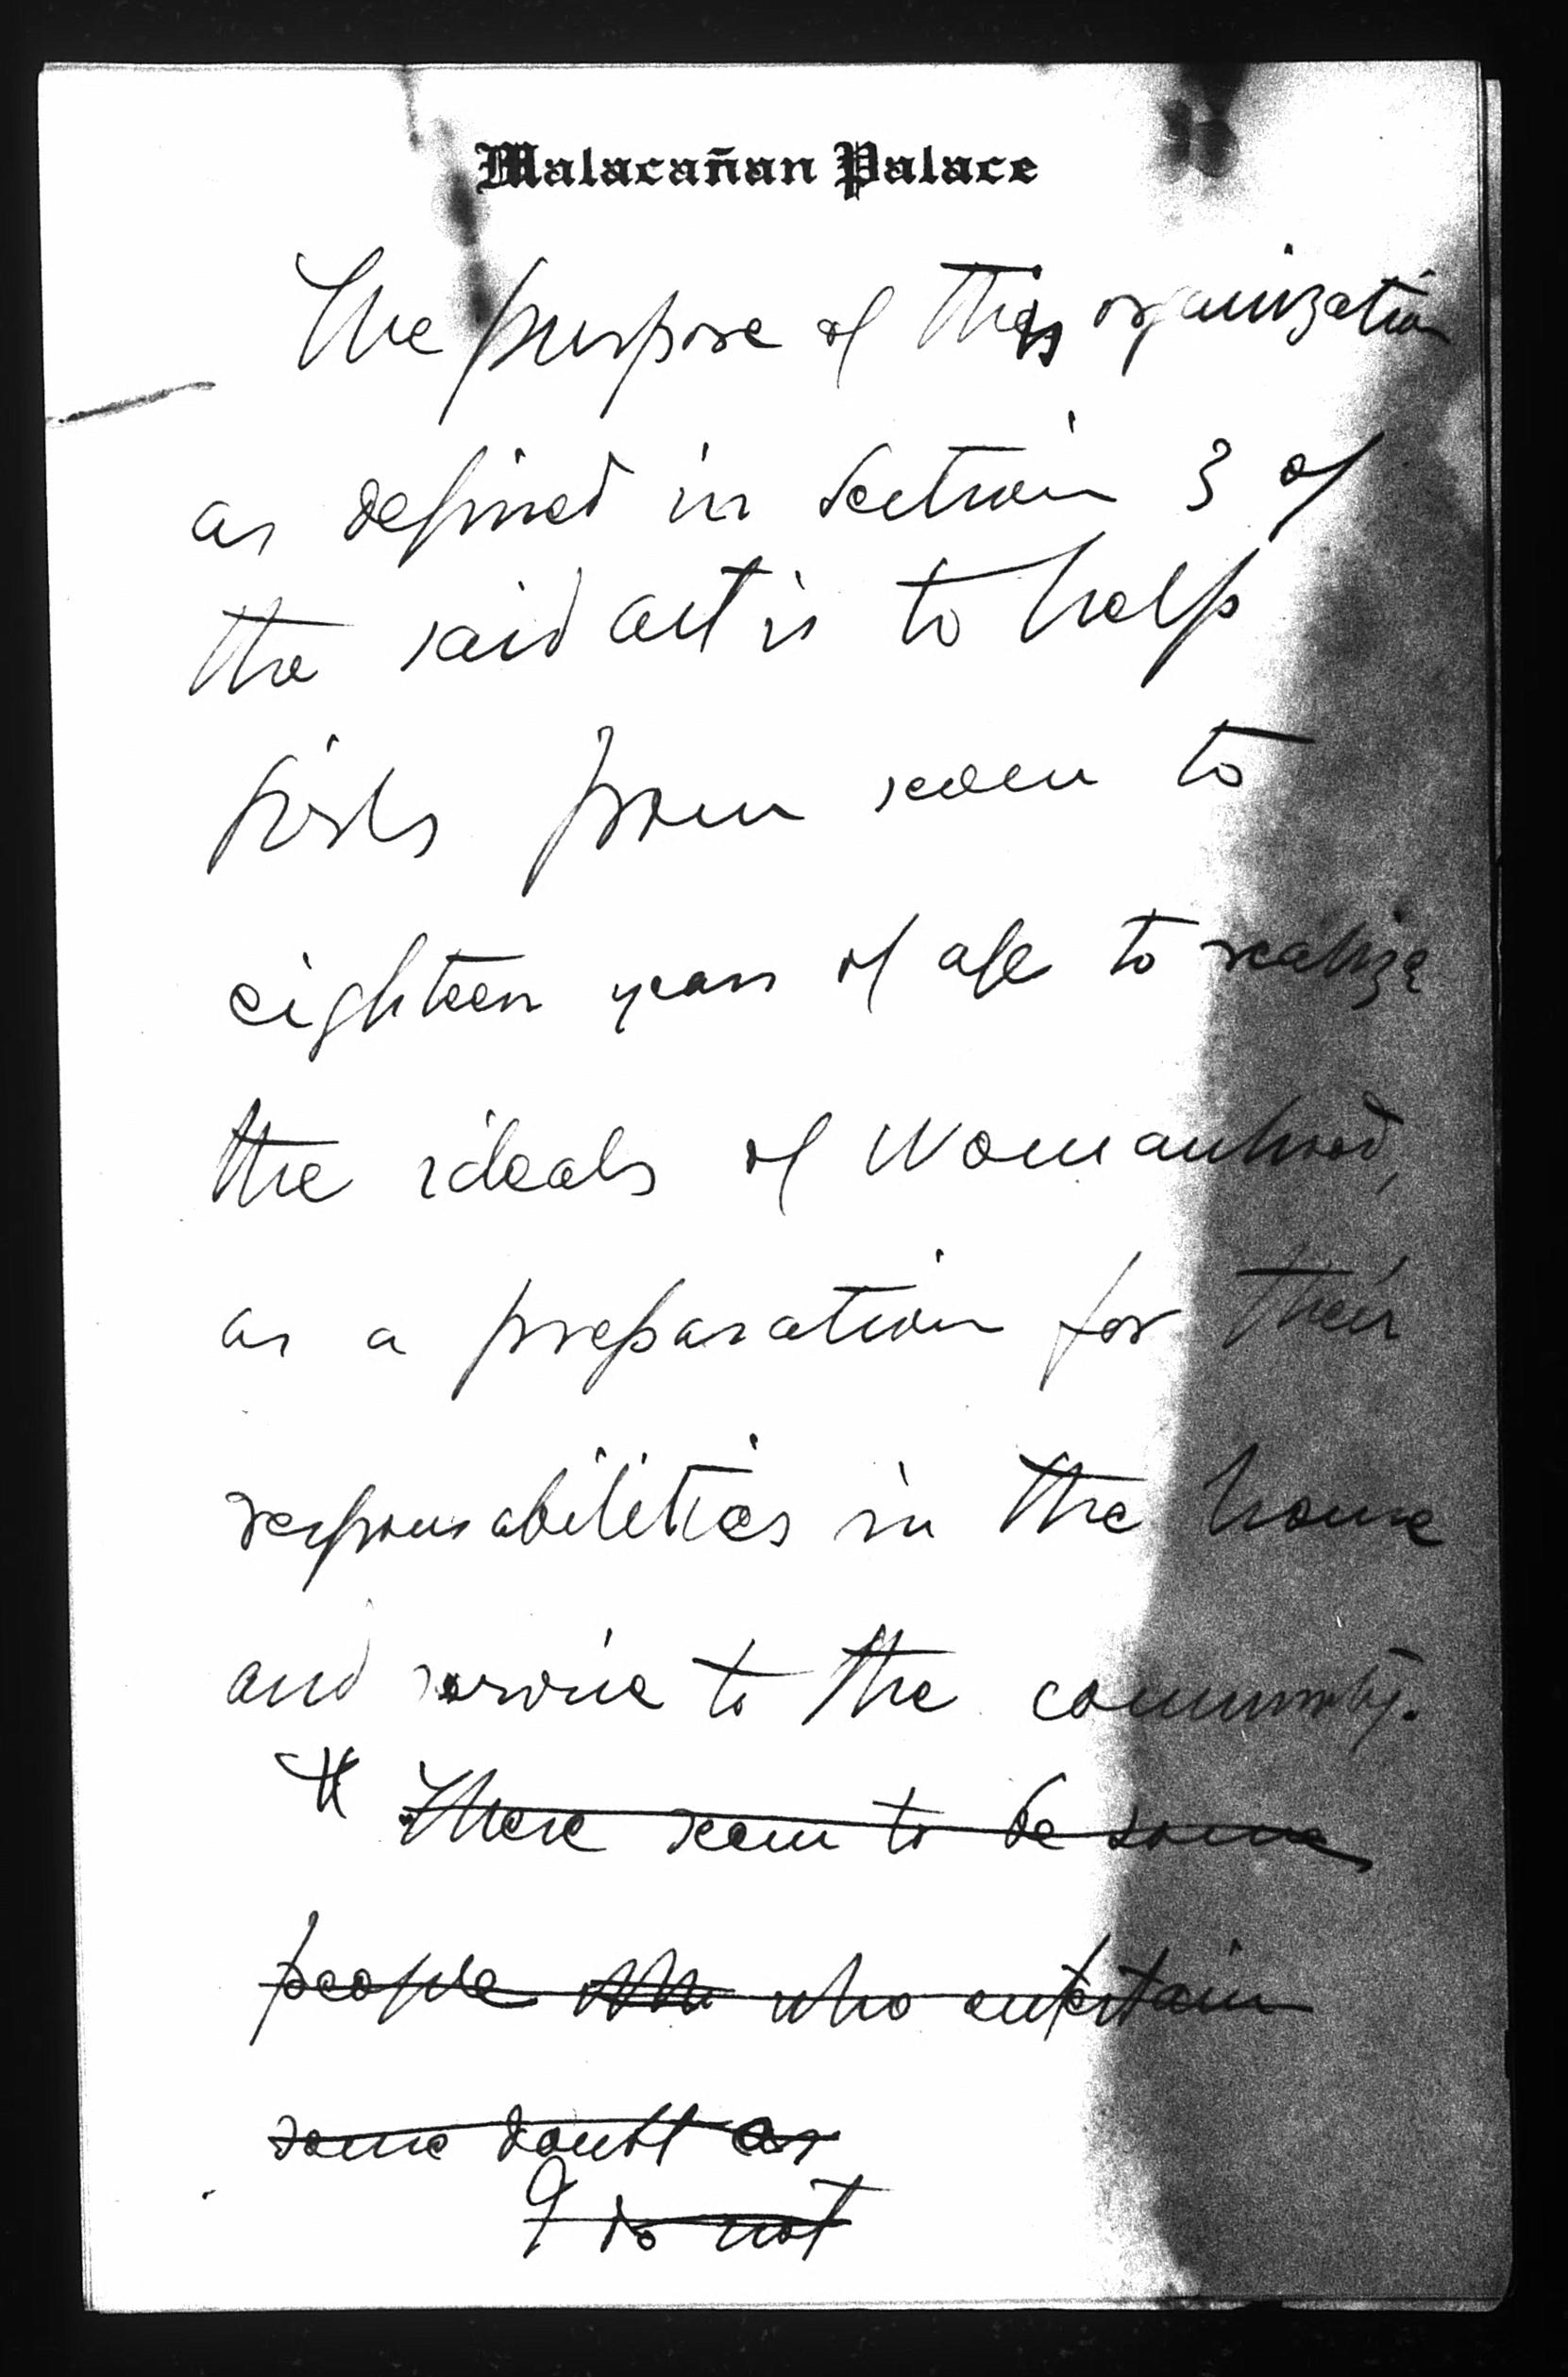 Malacañan Palace
The purpose of this organization
as defined in Section 3 of
the said act is to help
girls from seven to
eighteen years of age to realize
the ideals of womanhood,
as a preparation for their
responsabilities in the home
and service to the community.
There seem to be some
people who entertain
some doubt as
I do not